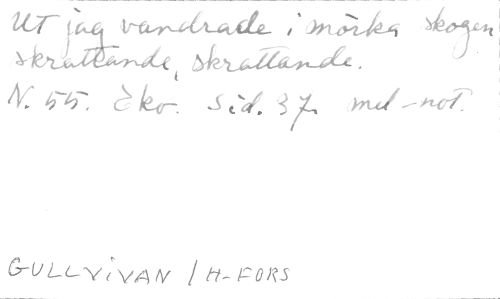 Ut jag vandrade i mörka skogen
skrattande, skrattande.
N. 55. Eko. Sid. 37. mel-not.
GULLVIVAN / H-FORS